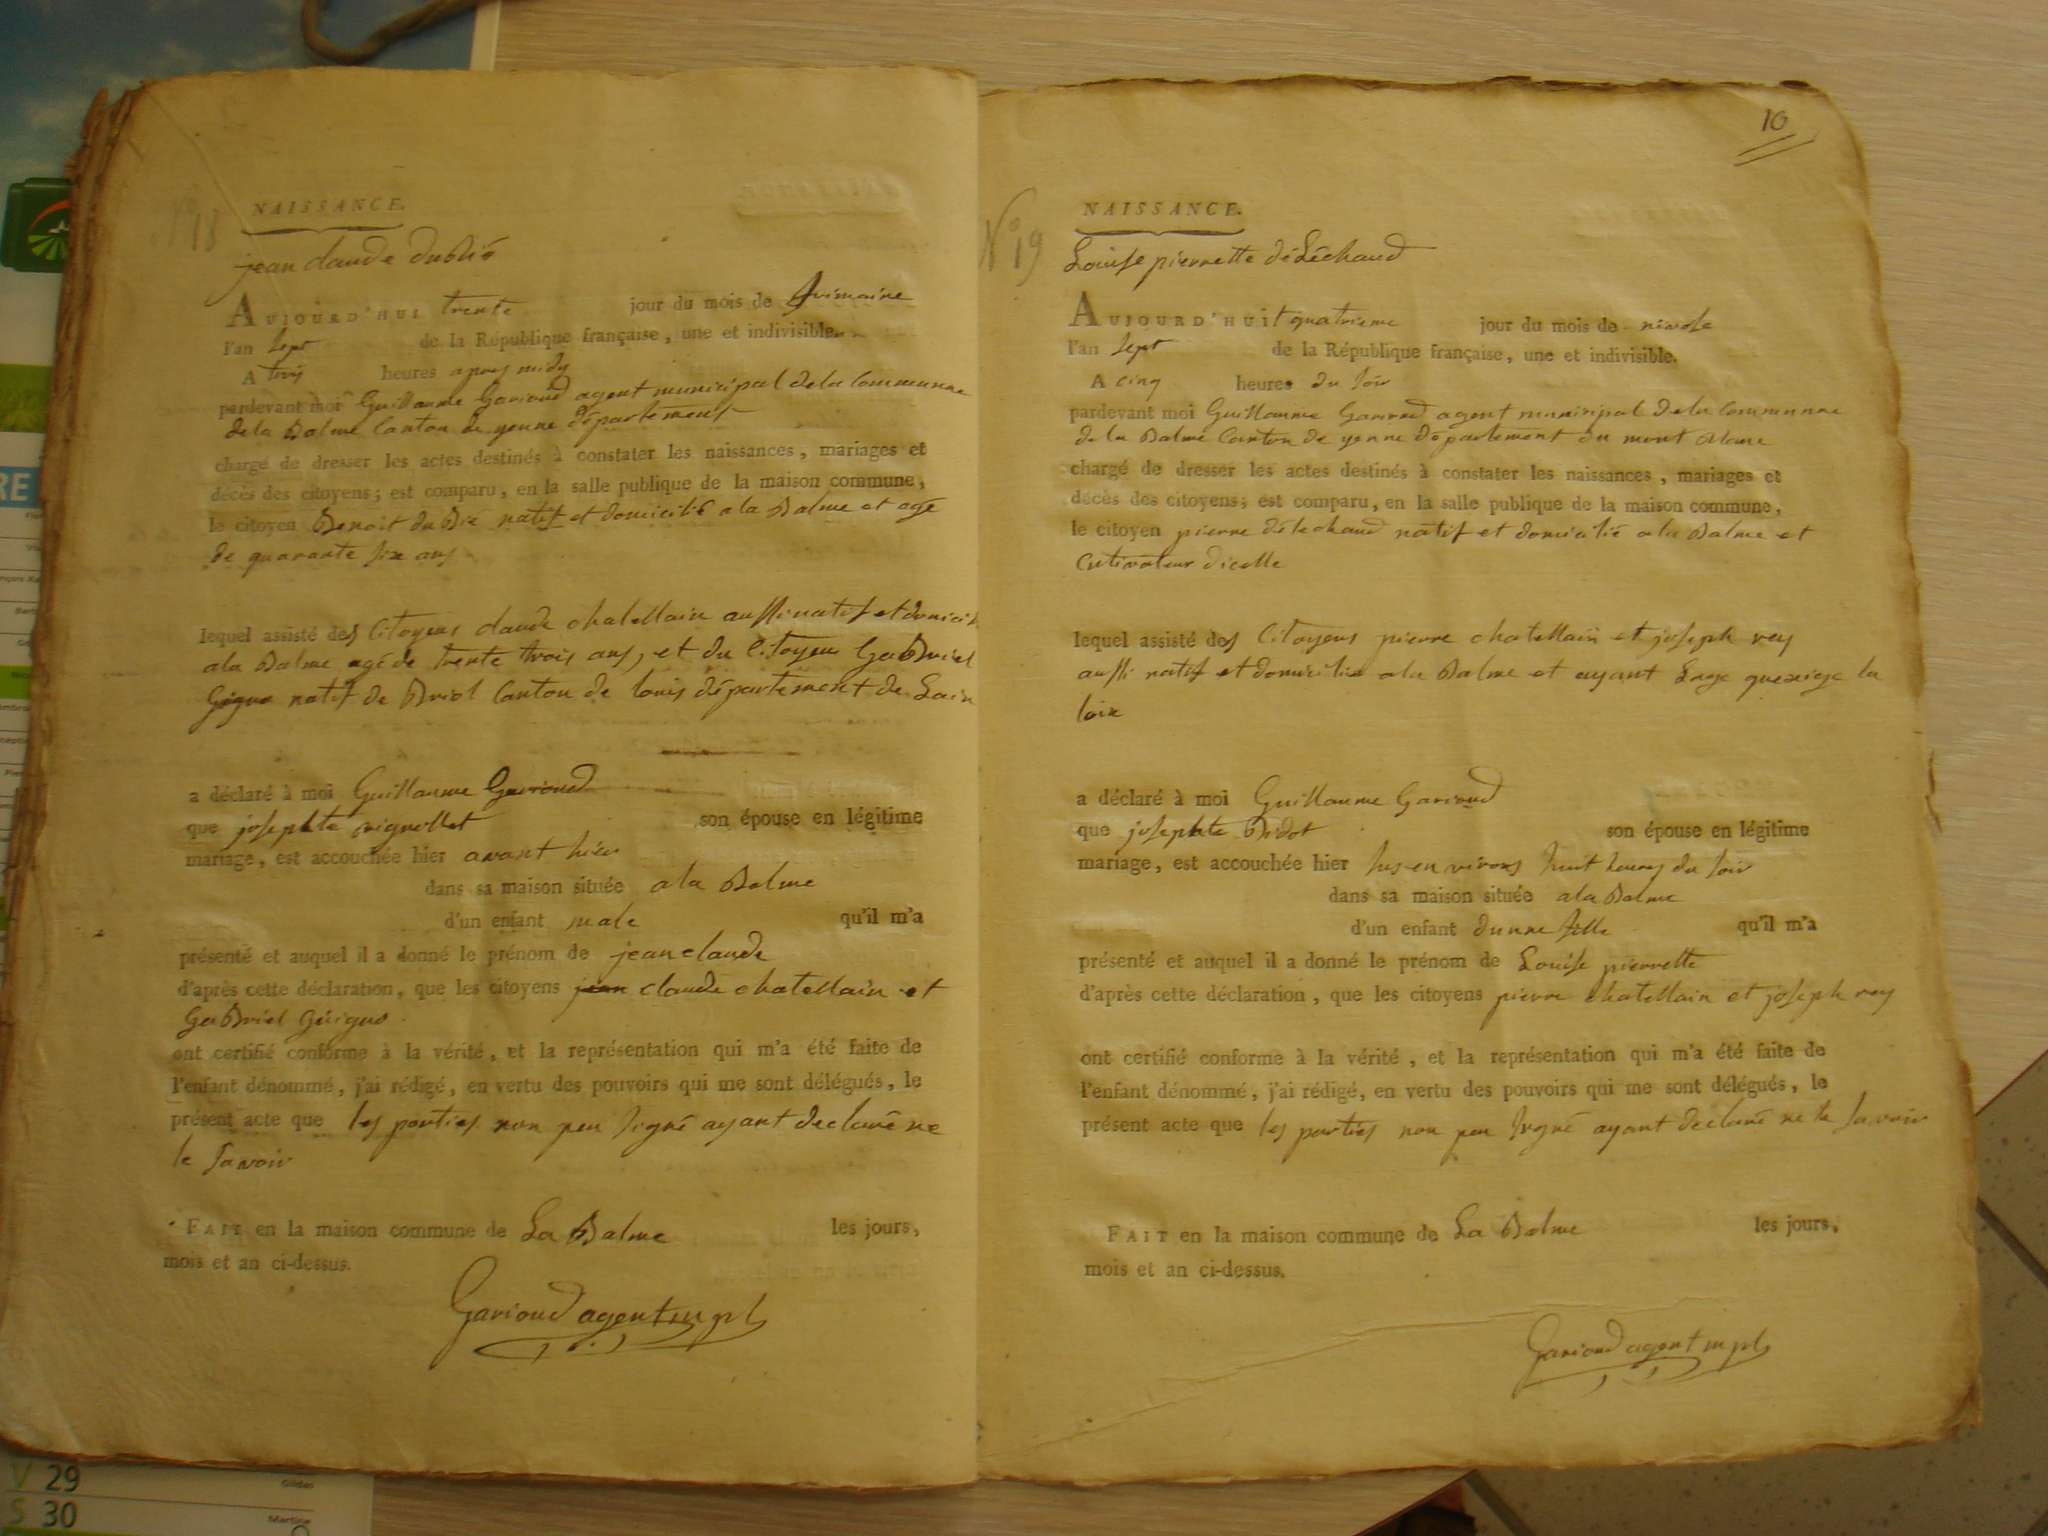 N° 18
NAISSANCE.
jean claude dubié
AUJOURD'HUI trente jour du mois de frimaire
l'an sept de la République française, une et indivisible.
A trois heures apres midy
pardevant moi Guillaume Garioud agent municipal dela Commune
dela Balme Canton de yenne département
chargé de dresser les actes destinés à constater les naissances, mariages et
décès des citoyens; est comparu, en la salle publique de la maison commune,
le citoyen Benoit duBié natif et domicilié ala Balme et agé
de quarante six ans
lequel assisté des Citoyens claude chatellain aussi natif et domicili
ala Balme agé de trente trois ans, et du Citoyen GaBriel
natif de Canton de département de Lain
a déclaré à moi Guillaume Garioud
que josephte son épouse en légitime
mariage, est accouchée hier avant hier
dans sa maison située ala Balme
d'un enfant male qu'il m'a
présenté et auquel il a donné le prénom de jean claude
d'après cette déclaration, que les citoyens jean claude chatellain et
GaBriel
ont certifié conforme à la vérité, et la représentation qui m'a été faite de
l'enfant dénommé, j'ai rédigé, en vertu des pouvoirs qui me sont délégués, le
présent acte que les parties non peu signé ayant declaré ne
le savoir
FAIT en la maison commune de La Balme les jours,
mois et an ci-dessus.
Garioud agent mpl
10
N° 19
NAISSANCE.
Louise pierrette déLéchaud
AUJOURD'HUI quatrieme jour du mois de nivose
l'an sept de la République française, une et indivisible.
A cinq heures du soir
pardevant moi Guillaume Garioud agent municipal dela Commune
dela Balme Canton de yenne département du mont blanc
chargé de dresser les actes destinés à constater les naissances, mariages et
décès des citoyens; est comparu, en la salle publique de la maison commune,
le citoyen pierre délechaud natif et domicilié ala Balme et
Cutivateur dicelle
lequel assisté des Citoyens pierre chatellain et joseph rey
aussi natif et domicilié ala Balme et ayant Lage quexige la
loix
a déclaré à moi Guillaume Garioud
que josephte Bidot son épouse en légitime
mariage, est accouchée hier sus en virons huit heures du soir
dans sa maison située ala Balme
d'un enfant dunne fille qu'il m'a
présenté et auquel il a donné le prénom de Louise pierrette
d'après cette déclaration, que les citoyens pierre chatellain et joseph rey
ont certifié conforme à la vérité, et la représentation qui m'a été faite de
l'enfant dénommé, j'ai rédigé, en vertu des pouvoirs qui me sont délégués, le
présent acte que les parties non peu signé ayant declaré ne le savoir
FAIT en la maison commune de La Balme les jours,
mois et an ci-dessus.
Garioud agent mpl
RE
V 29
S 30
Martine